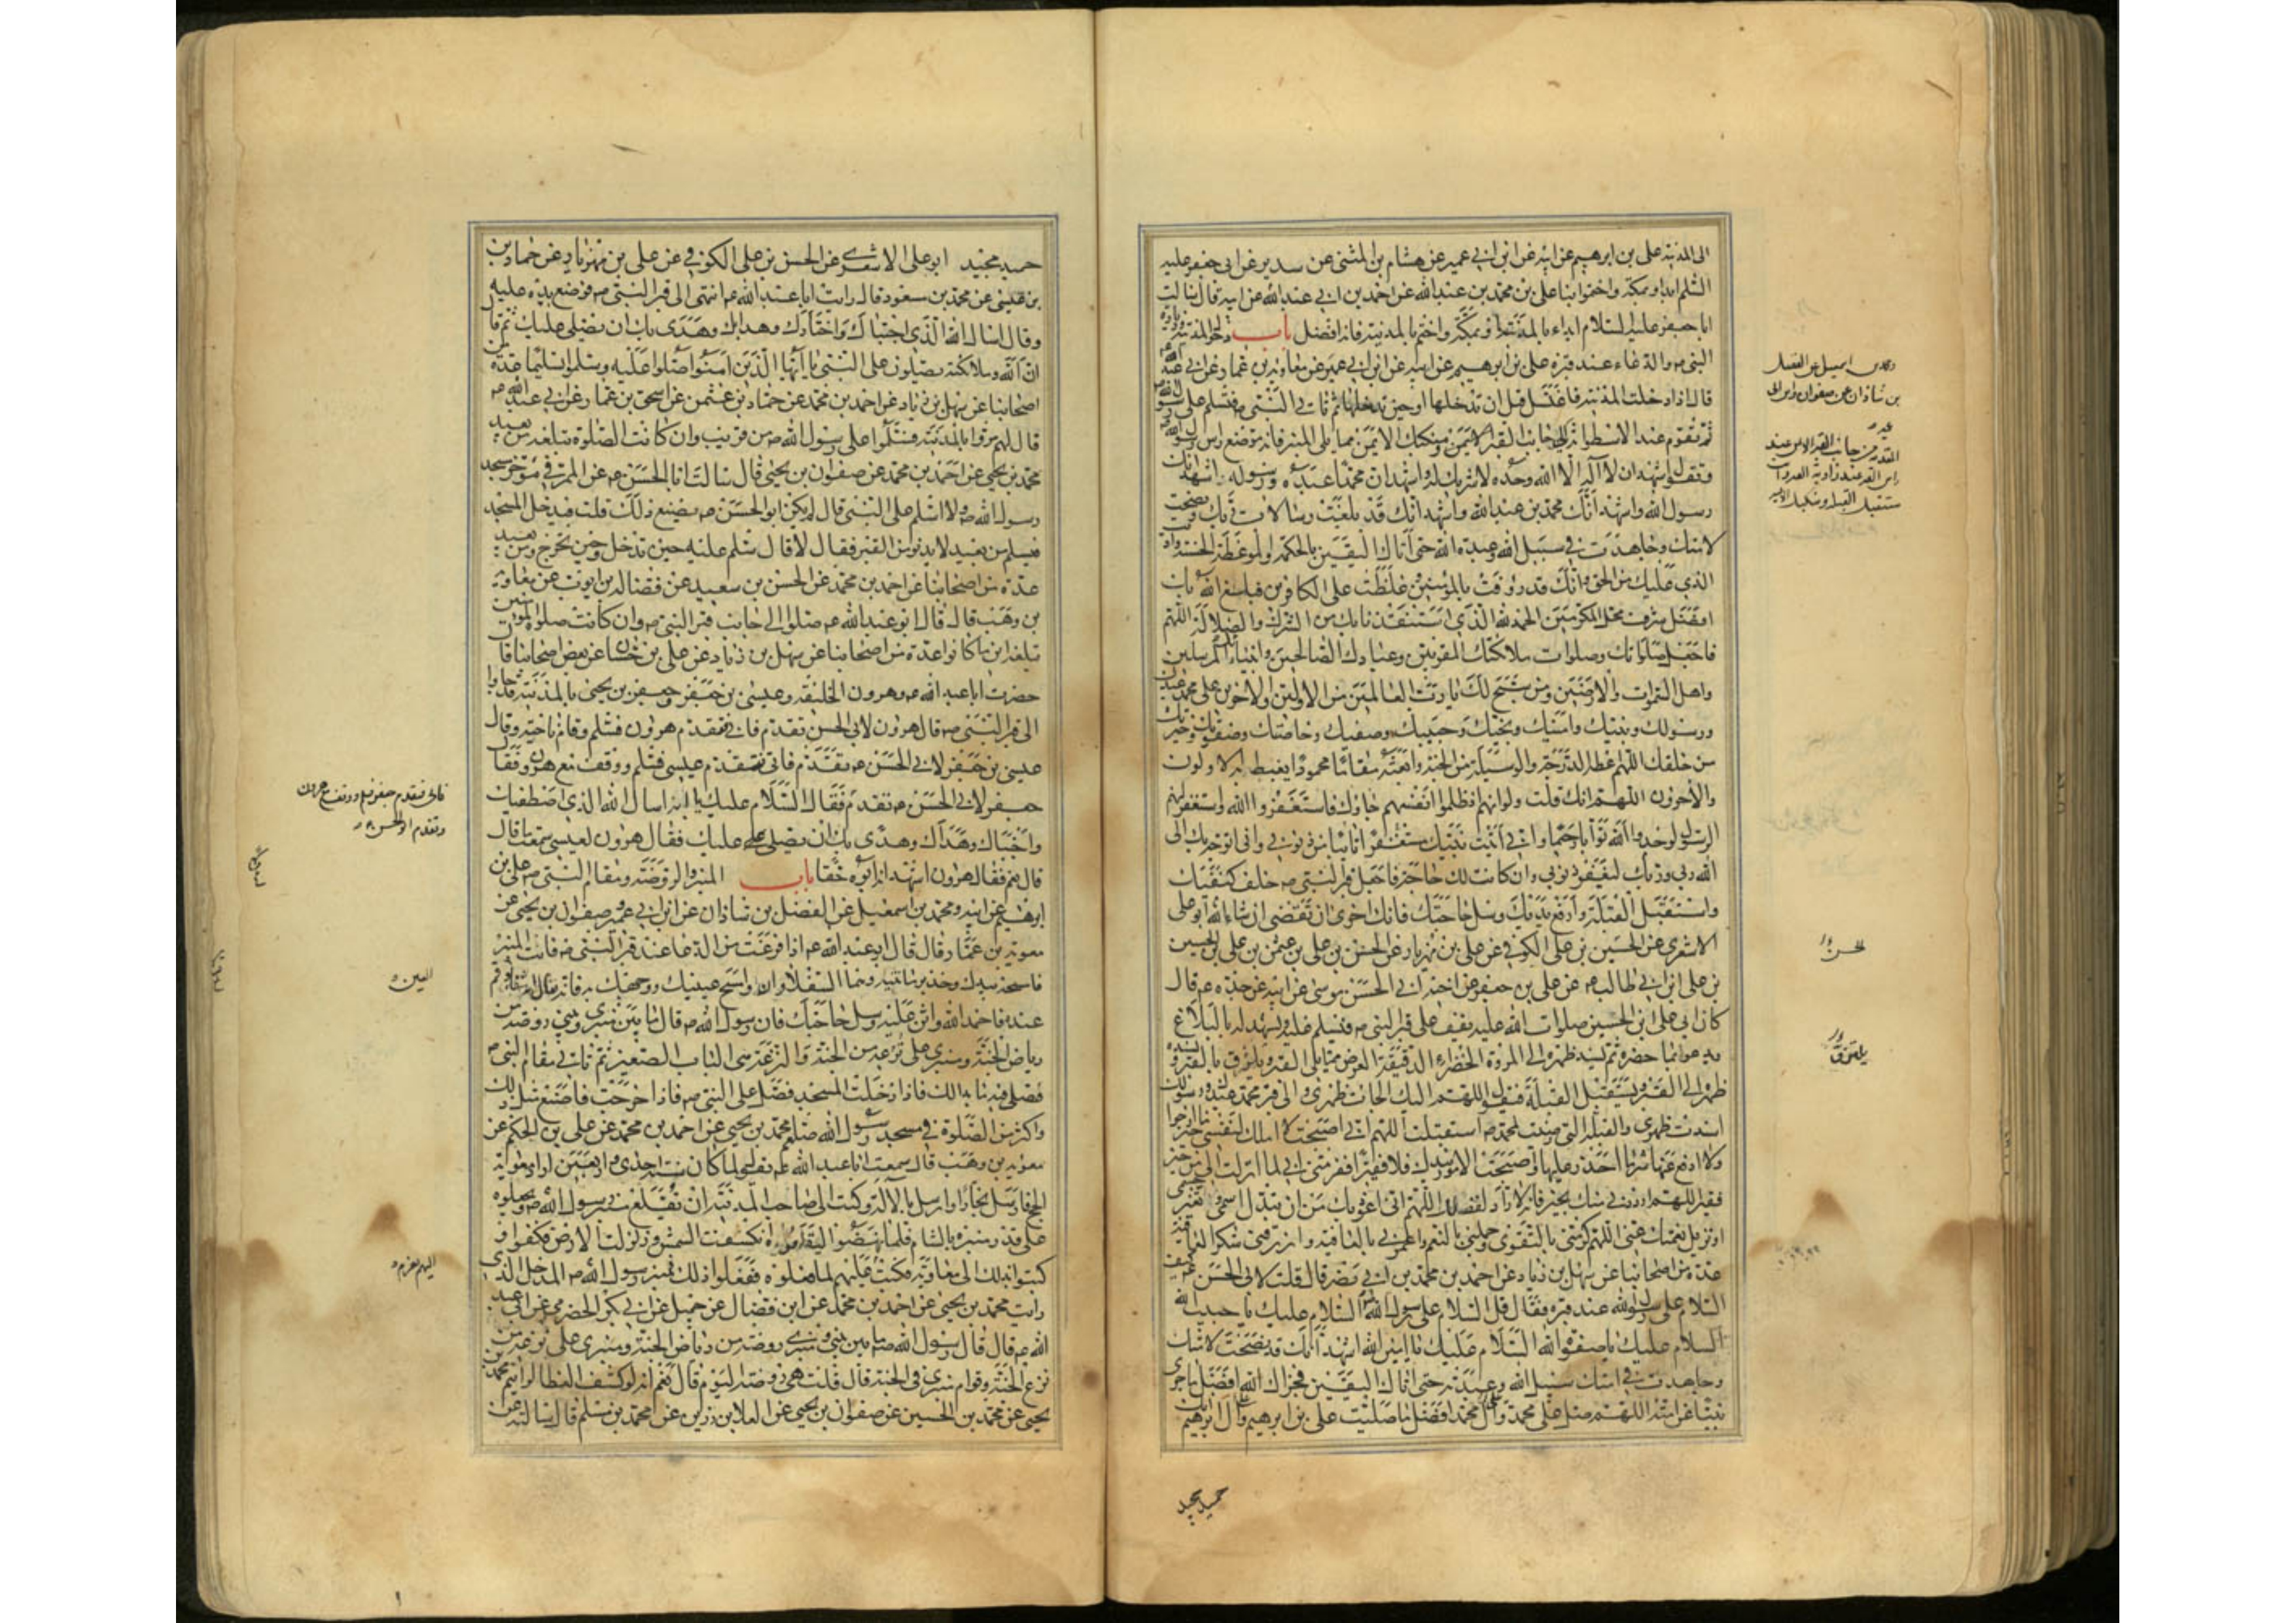 الى المدينة على بن ابرهيم عن ابيه عن ابن ابي عمير عن هشام بن المثنى عن سدير عن ابى جعفر عليه
السلم ابدأوا بمكة واختموا بنا على بن محمد بن عبدالله عن احمد بن ابي عبدالله عن ابيه قال سالت
ابا جعفر عليه السلام ابداء بالمدينة او بمكة واختم بالمدينة فانه افضل باب دخول المدينة وزيارة
النبى ص والدعاء عند قبره على بن ابرهيم عن ابيه عن ابن ابي عمير عن معاوية بن عمار عن ابي عبد الله ع
قال اذا دخلت المدينة فاغتسل قبل ان تدخلها او حين تدخلها ثم تاتي النبى ص فتسلم على رسول الله ص
ثم تقوم عند الاسطوانة جانب القبر الايمن ومنكبك الايمن مما يلى المنبر فانه موضع راس رسول الله ص
وتقول اشهد ان لا اله الا الله وحده لا شريك له واشهد ان محمدا عبده ورسوله اشهد انك
رسول الله واشهد انك محمد بن عبدالله واشهد انك قد بلغت رسالات ربك ونصحت
لامتك وجاهدت في سبيل الله وعبدت الله حتى اتاك اليقين بالحكمة والموعظة الحسنة واديت
الذي عليك من الحق وانك قد رؤفت بالمؤمنين وغلظت على الكافرين فبلغ الله بك
افضل شرف محل المكرمين الحمد لله الذي استنقذنا بك من الشرك والضلالة اللهم
فاجعل صلواتك وصلوات ملائكتك المقربين وعبادك الصالحين وانبيائك المرسلين
واهل السموات والارضين ومن سبح لك يا رب العالمين من الاولين والاخرين على محمد عبدك
ورسولك ونبيك وامينك ونجيك وحبيبك وصفيك وخاصتك وصفوتك وخيرتك
من خلقك اللهم اعطه الدرجة والوسيلة من الجنة وابعثه مقاما محمودا يغبطه به الاولون
والآخرون اللهم انك قلت ولو انهم اذ ظلموا انفسهم جاؤك فاستغفروا الله واستغفر لهم
الرسول لوجدوا الله توابا رحيما واني اتيت نبيك مستغفرا تائبا من ذنوبي وانى اتوجه بك الى
الله ربي وربك ليغفر ذنوبي وان كانت لك حاجة فاجعل قبر النبي ص خلف كتفيك
واستقبل القبلة وارفع يديك وسل حاجتك فانك احرى ان تقضى ان شاء الله ابو على
الاشعري عن الحسين بن على الكوفي عن على بن مهزيار عن الحسن بن على بن عثمن بن على بن الحسين
بن على ابن ابي طالب ع عن على بن جعفر عن اخيه ابي الحسن موسى عن ابيه عن جده ع قال
كان ابي على ابن الحسين صلوات الله عليه يقف على قبر النبي ص فيسلم عليه ويشهد له بالبلاغ
ويدعو بما حضره ثم يسند ظهره الى المروة الخضراء الدقيقة العرض مما يلى القبر ويلتزق بالقبر ويسند
ظهره الى القبر ويستقبل القبلة فيقول اللهم اليك الجات ظهري والى قبر محمد عبدك ورسولك
اسندت ظهري والقبلة التي رضيت لمحمد ص استقبلت اللهم اني اصبحت لا املك لنفسي خير ما ارجوا
ولا ادفع عنها شر ما احذر عليها واصبحت الامور بيدك فلا فقير افقر مني اني لما انزلت الى من خير
فقير اللهم ارددني منك بخير فانه لا راد لفضلك اللهم انى اعوذ بك من ان تبدل اسمى او تغير جسمى
او تزيل نعمتك عنى اللهم كرمنى بالتقوى وجملني بالنعم واعمرني بالعافية وارزقني شكر العافية
عدة من اصحابنا عن سهل بن زياد عن احمد بن محمد بن ابي نصر قال قلت لابى الحسن ع كيف
السلام على رسول الله عند قبره فقال قل السلام على رسول الله السلام عليك يا حبيب الله
السلام عليك يا صفوة الله السلام عليك يا امين الله اشهد انك قد نصحت لامتك
وجاهدت في سبيل الله وعبدته حتى اتاك اليقين فجزاك الله افضل ما جزى
نبيا عن امته اللهم صل على محمد وآل محمد افضل ما صليت على ابرهيم وآل ابرهيم انك
حميد مجيد
بن شاذان عن صفوان وابن ابى
المقدم من جانب القبر الايمن عند
الحسن
يلتزق
حميد مجيد ابو على الاشعري عن الحسن بن على الكوفي عن على بن مهزيار عن حماد بن
بن عيسى عن محمد بن مسعود قال رايت ابا عبدالله ع انتهى الى قبر النبى ص فوضع يده عليه
وقال اسال الله الذي اجتباك واختارك وهداك وهدى بك ان يصلى عليك ثم قال
ان الله وملائكته يصلون على النبي يا ايها الذين امنوا صلوا عليه وسلموا تسليما عدة من
اصحابنا عن سهل بن زياد عن احمد بن محمد عن حماد بن عثمن عن اسحق بن عمار عن ابي عبدالله ع
قال لهم مروا بالمدينة فسلموا على رسول الله ص من قريب وان كانت الصلوة تبلغه من بعيد
محمد بن يحيى عن احمد بن محمد عن صفوان بن يحيى قال سالت ابا الحسن ع عن الممر في مؤخر مسجد
رسول الله ص ولا اسلم على النبى قال لم يكن ابو الحسن ع يصنع ذلك قلت فيدخل المسجد
فيسلم من بعيد لا يدنو من القبر فقال لا قال سلم عليه حين تدخل وحين تخرج ومن بعيد
عدة من اصحابنا عن احمد بن محمد عن الحسن بن سعيد عن فضالة بن ايوب عن معاوية
بن وهب قال قال ابو عبدالله ع صلوا الى جانب قبر النبى ص وان كانت صلوة المؤمنين
تبلغه اين ما كانوا عدة من اصحابنا عن سهل بن زياد عن على بن حسان عن بعض اصحابنا قال
حضرت ابا عبد الله ع وهرون الخليفة وعيسى بن جعفر وجعفر بن يحيى بالمدينة قد جاوا
الى قبر النبى ص قال هرون لابى الحسن تقدم فابي فتقدم هرون فسلم وقام ناحية وقال
عيسى بن جعفر لابي الحسن ع تقدم فابى فتقدم عيسى فسلم ووقف مع هرون وقال
جعفر لابي الحسن ع تقدم فقال السلام عليك يا ابه اسال الله الذي اصطفيك
واجتباك وهداك وهدى بك ان يصلى عليك فقال هرون لعيسى سمعت ما قال
قال نعم فقال هرون اشهد انه ابوه حقا باب المنبر والروضة ومقام النبى ص على بن
ابرهيم عن ابيه ومحمد بن اسمعيل عن الفضل بن شاذان عن ابن ابي عمير وصفوان بن يحيى عن
معوية بن عمار قال قال ابو عبد الله ع اذا فرغت من الدعا عند قبر النبى ص فائت المنبر
فامسحه بيدك وخذ برمانتيه وهما السفلاوان وامسح عينيك ووجهك به فانه يقال وقم
عنده فاحمد الله واثن عليه وسل حاجتك فان رسول الله ص قال ما بين منبري وبيتي روضة من
رياض الجنة ومنبري على ترعة من الجنة والترعة هى الباب الصغير ثم تاتي مقام النبى ص
فصلى فيه ما بدا لك فاذا دخلت المسجد فصل على النبى ص فاذا خرجت فاصنع مثل ذلك
واكثر من الصلوة في مسجد رسول الله ص محمد بن يحيى عن احمد بن محمد عن على بن الحكم عن
معوية بن وهب قال سمعت ابا عبد الله ع يقول لما كان سنة احدى واربعين اراد معوية
الحج فارسل نجارا وارسل بالآلة وكتب الى صاحب المدينة ان يقلع منبر رسول الله ص ويجعلوه
على قدر منبره بالشام فلما نهضوا ليقلعوه انكسفت الشمس وزلزلت الارض فكفوا و
كتبوا بذلك الى معاوية فكتب عليهم لما فعلوه ففعلوا ذلك فمنبر رسول الله ص المدخل الذى
رايت محمد بن يحيى عن احمد بن محمد عن ابن فضال عن جميل عن ابي بكر الحضرمى عن ابى عبد
الله ع قال قال رسول الله ص ما بين بيتي ومنبري روضة من رياض الجنة ومنبري على ترعة من
ترع الجنة وقوائم منبري في الجنة قال قلت هى روضة اليوم قال نعم انه لو كشف الغطا لرايتم محمد بن
يحيى عن محمد بن الحسين عن صفوان بن يحيى عن العلا بن رزين عن محمد بن مسلم قال سالته عن
فابى فتقدم جعفر فسلم ووقف مع هرون
وتقدم ابو الحسن ع
العينين